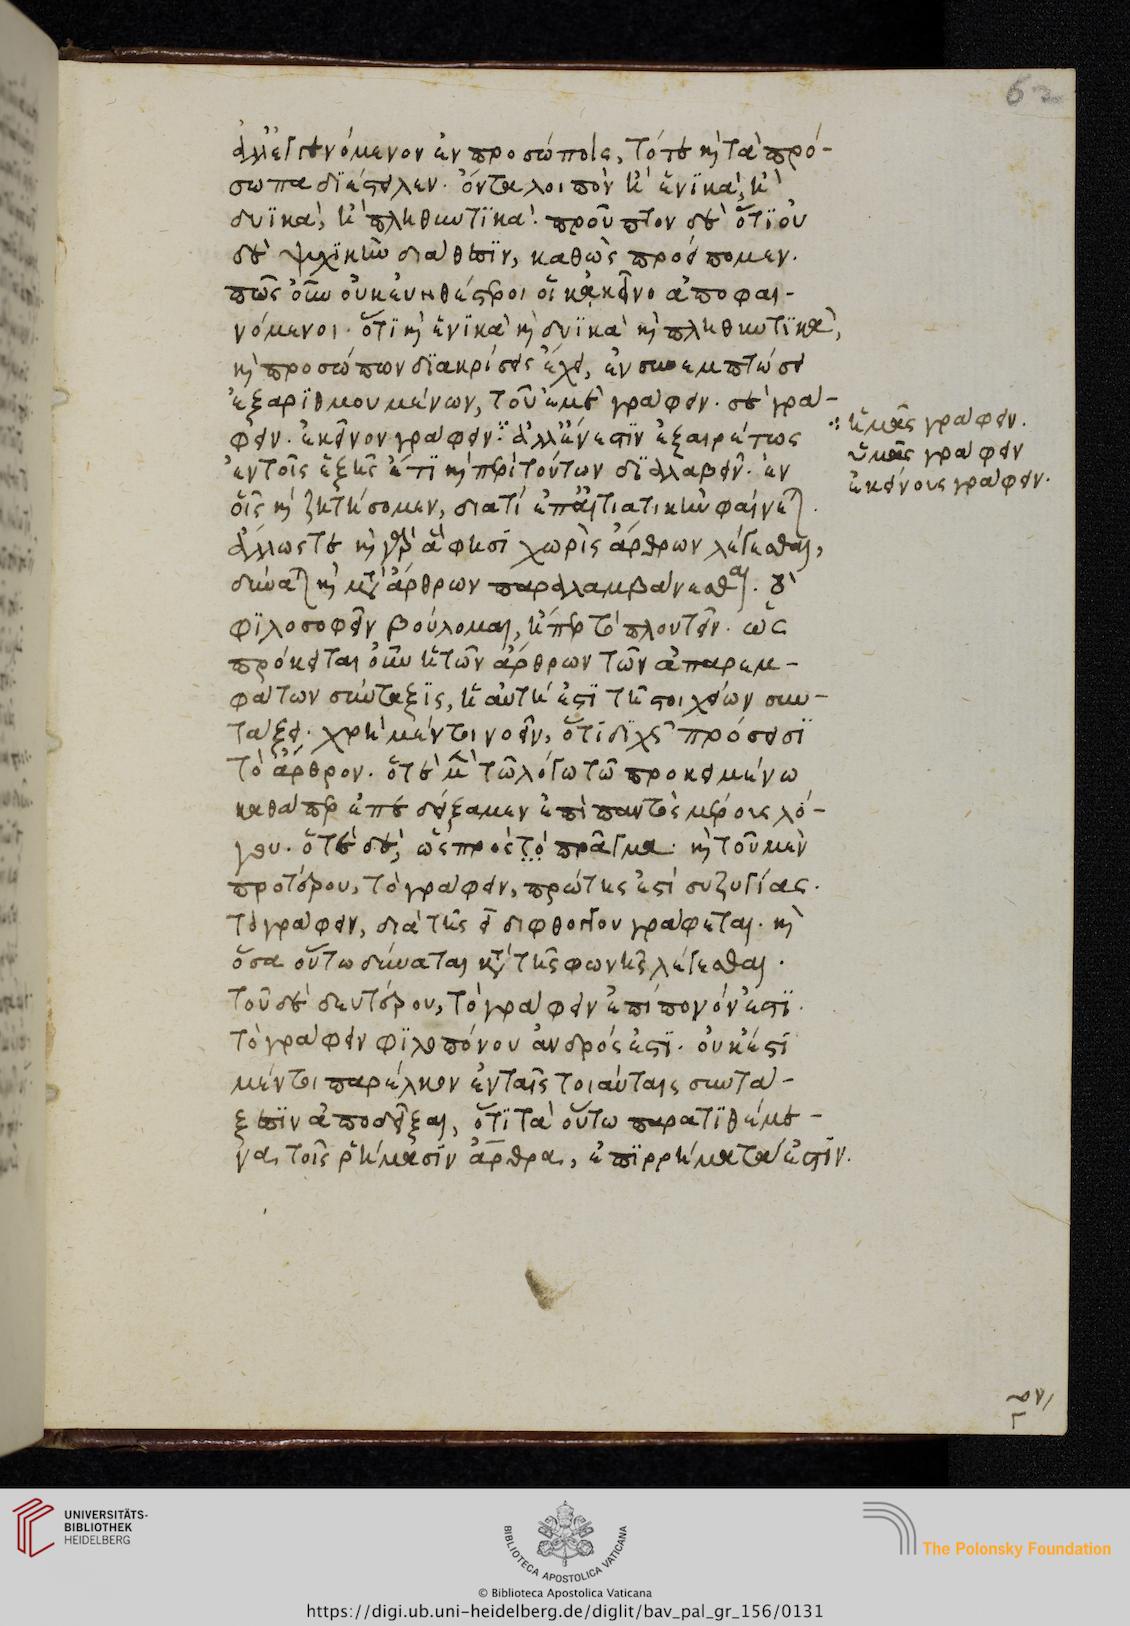 62
ἀλλ' ἐγγενόμενον ἐν προσώποις, τότε καὶ τὰ πρό-
σωπα διέστειλεν. ὄντα λοιπὸν ἢ ἑνικὰ, ἢ
δυϊκὰ, ἢ πληθυντικά. προῦπτον δὲ ὅτι οὐ
δὲ ψυχικὴν διάθεσιν, καθὼς προείπομεν.
πῶς οὖν οὐκ εὐηθέστεροι οἱ κἀκεῖνο ἀποφαι-
νόμενοι. ὅτι καὶ ἑνικὰ καὶ δυϊκὰ καὶ πληθυντικὰ,
καὶ προσώπων διακρίσεις ἔχει, ἐν συνεμπτώσει
ἐξαριθμουμένων, τοῦ ἐμὲ γράφειν. σὲ γρά-
φειν. ἐκεῖνον γράφειν. ἀλλ' ἔνεστιν ἐξαιρέτως
ἐν τοῖς ἑξῆς ἔτι καὶ περὶ τούτων διαλαβεῖν. ἐν
οἷς καὶ ζητήσομεν, διατί ἐπ' αἰτιατικὴν φαίνεται.
ἄλλως τε καὶ γὰρ ἅ φησι χωρὶς ἄρθρων λέγεσθαι,
δύναται καὶ μετ' ἄρθρων παραλαμβάνεσθαι. τὸ
φιλοσοφεῖν βούλομαι, ἤπερ τὸ πλουτεῖν. ὡς
πρόκειται οὖν ἡ τῶν ἀρθρων τῶν ἀπαρεμ-
φάτων σύνταξις, ἡ αὐτή ἐστι τῇ στοιχείων συν-
τάξει. χρὴ μέντοι νοεῖν, ὅτι διχῆ πρόσεισι
τὸ ἄρθρον. ὁτὲ μὲν τῶ λόγω τῶ προκειμένω
καθάπερ ἐπεδείξαμεν ἐπὶ παντὸς μέρους λό-
γου. ὁτὲ δὲ, ὡς πρὸς τὸ πρᾶγμα. καὶ τοῦ μὲν
προτέρου, τὸ γράφειν, πρώτης ἐστὶ συζυγίας.
τὸ γράφειν, διὰ τῆς ει διφθόγγου γράφεται. καὶ
ὅσα οὕτω δύναται κατὰ τῆς φωνῆς λέγεσθαι.
τοῦ δὲ δευτέρου, τὸ γράφειν ἐπίπονόν ἐστι.
τὸ γράφειν φιλοπόνου ἀνδρός ἐστι. οὐκ ἔστι
μέντοι παρέλκον ἐν ταῖς τοιαύταις συντά-
ξεσιν ἀποδεῖξαι, ὅτι τὰ οὕτω παρατιθέμε-
να, τοῖς ῥήμασιν ἄρθρα, ἐπιρρήματα ἐστίν.
ἡμᾶς γράφειν.
ὑμᾶς γράφειν
ἐκείνους γράφειν.
UNIVERSITÄTS-
BIBLIOTHEK
HEIDELBERG
BIBLIOTECA APOSTOLICA VATICANA
The Polonsky Foundation
© Biblioteca Apostolica Vaticana
https://digi.ub.uni-heidelberg.de/diglit/bav_pal_gr_156/0131